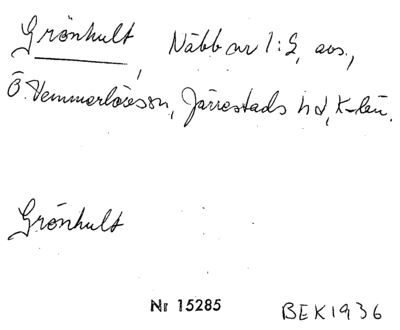 Grönhult, Näbb av 1:2, avs.,
Ö. Vemmerlövs sn, Järrestads hd, K-län.
Grönhult
Nr 15285 BEK1936